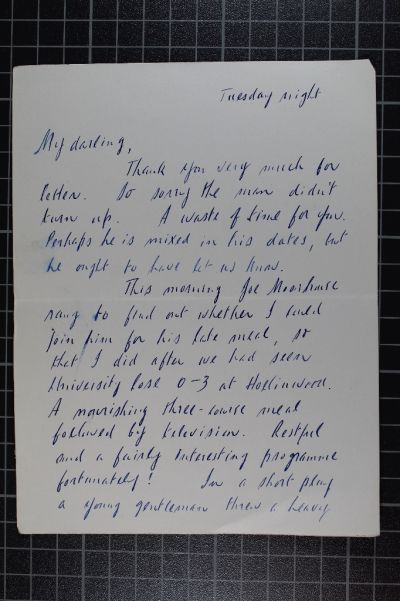 Tuesday night
My darling,
Thank you very much for
letter. So sorry the man didn't
turn up. A waste of time for you.
Perhaps he is mixed in his dates, but
he ought to have let us know.
This morning Joe Moorhouse
rang to find out whether I could
join him for his late meal, so
that I did after we had seen
University lose 0-3 at Hollinwood.
A nourishing three-course meal
followed by television. Restful
and a fairly interesting programme
fortunately! In a short play
a young gentleman threw a heavy